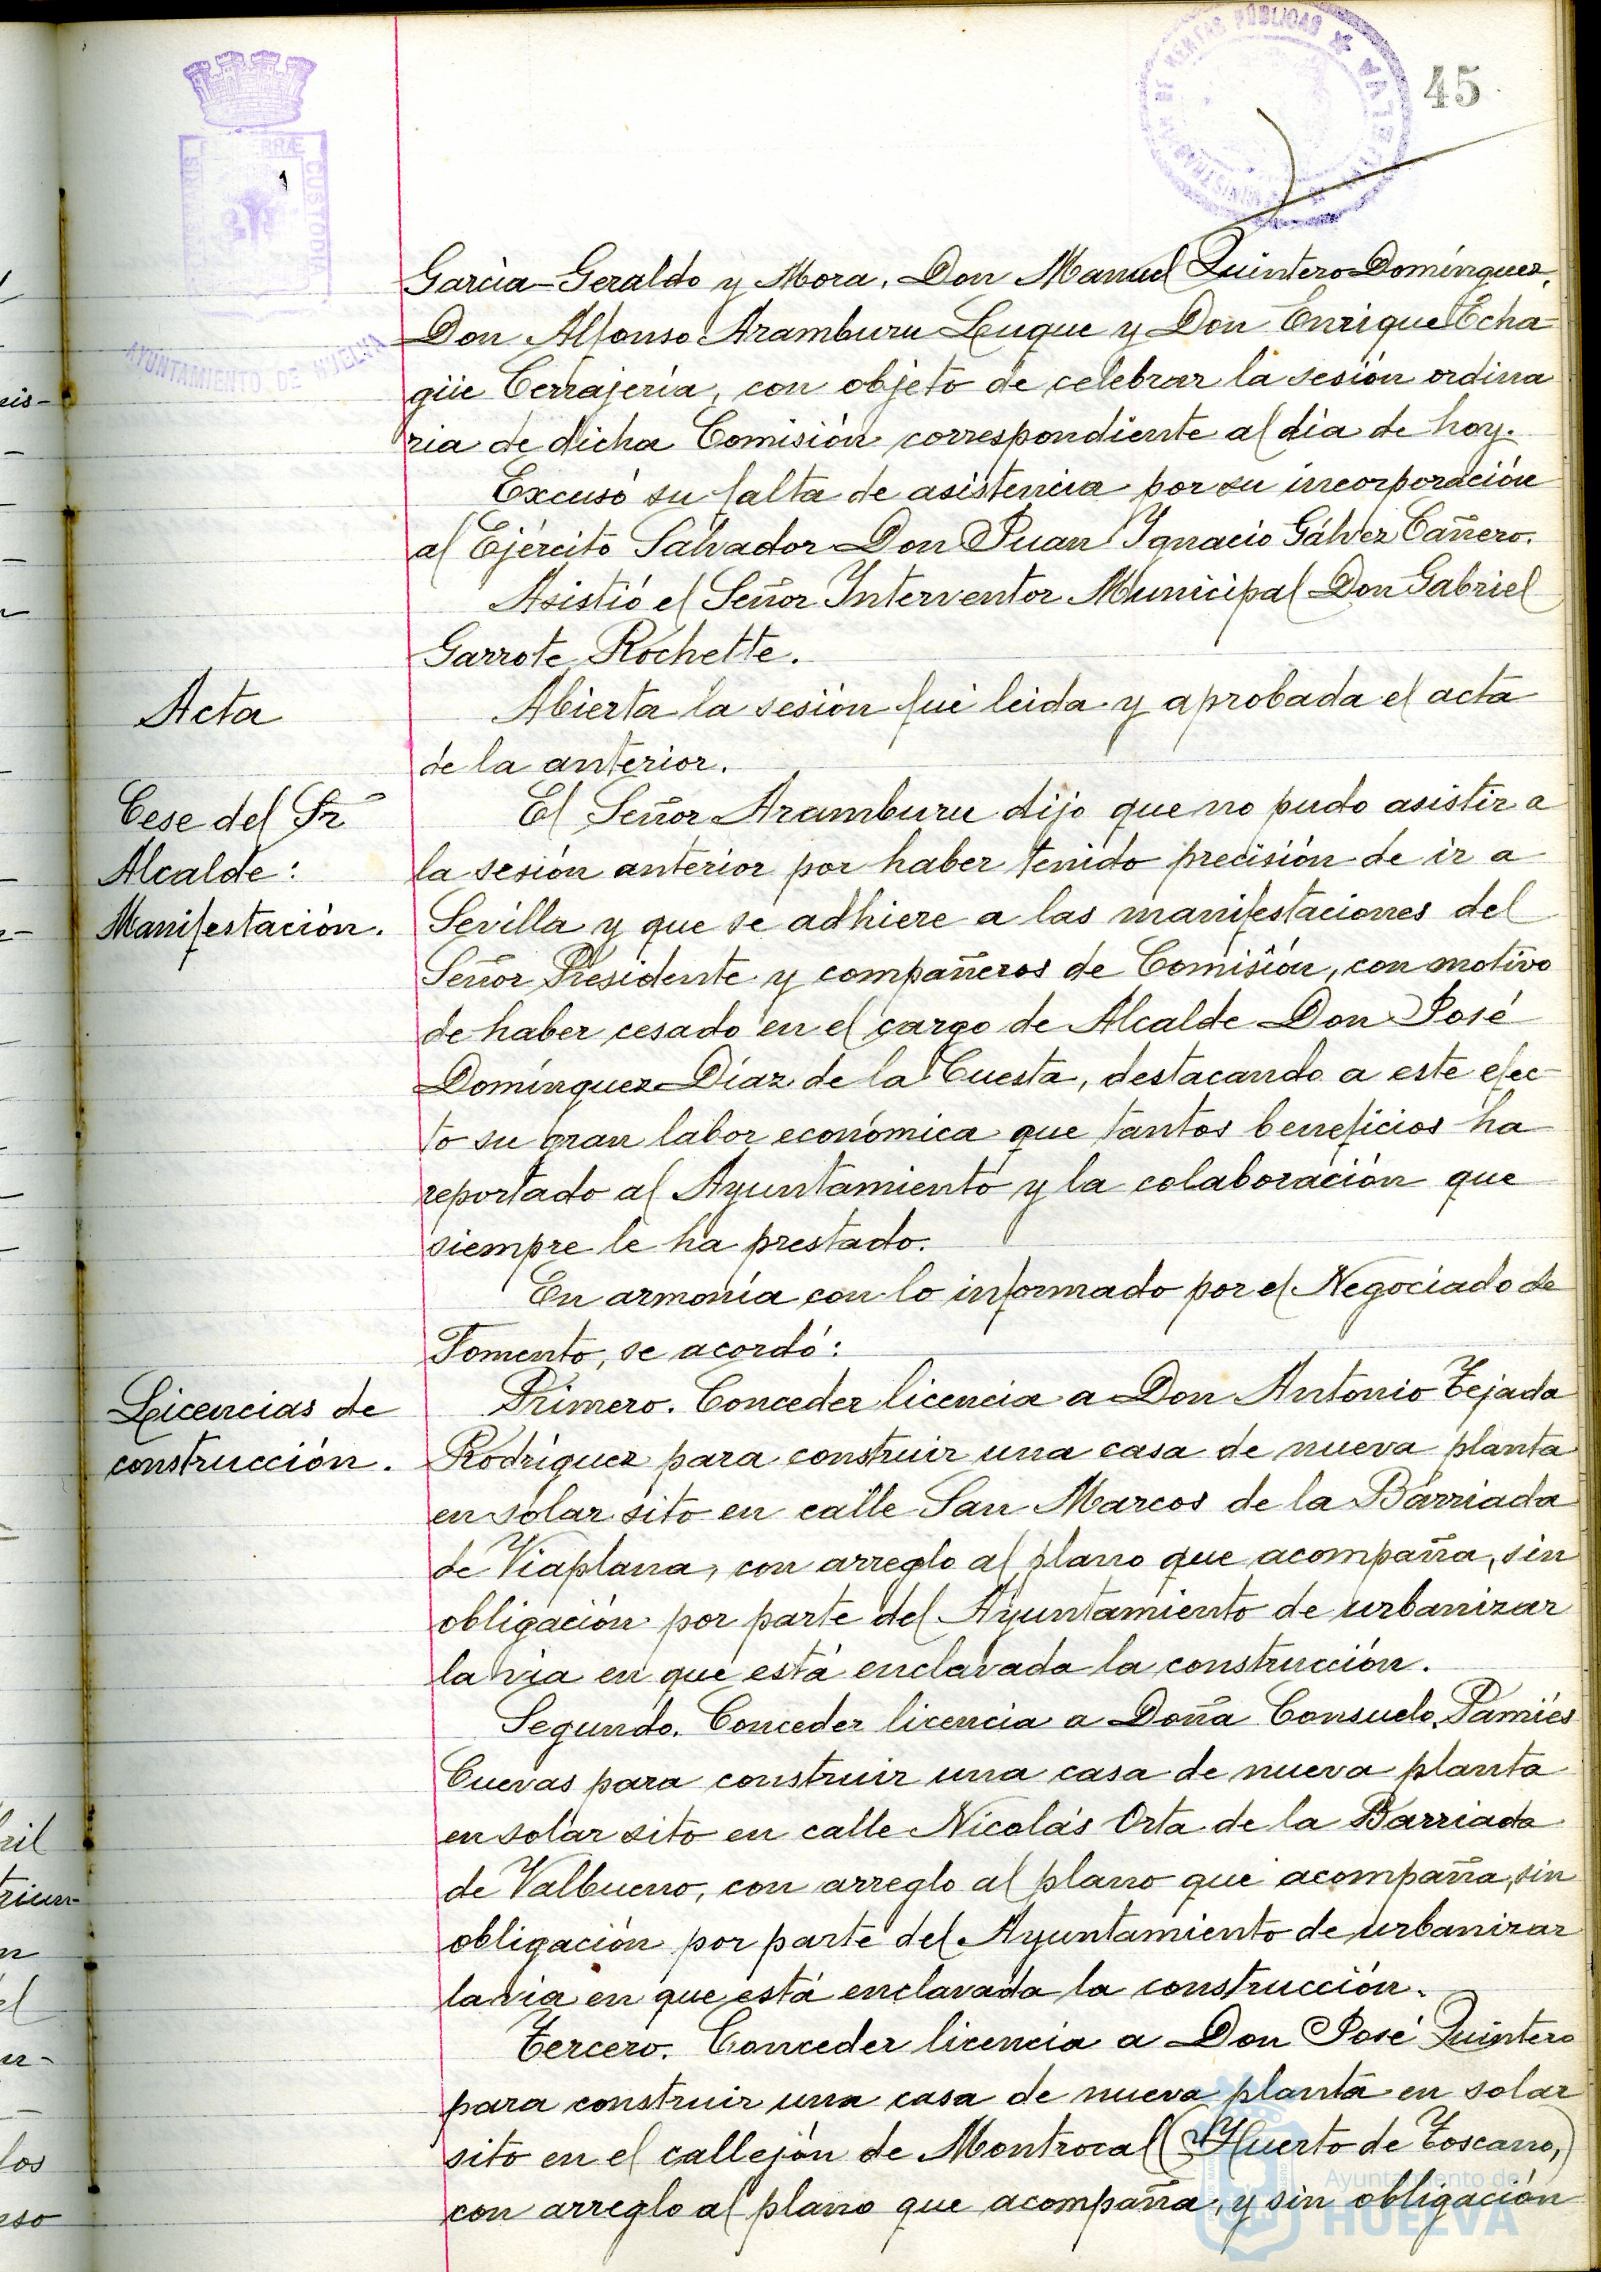 45
AYUNTAMIENTO DE HUELVA
García-Geraldo y Mora, Don Manuel Quintero Domínguez,
Don Alfonso Aramburu Luque y Don Enrique Echa-
güe Cerrajería, con objeto de celebrar la sesión ordina
ria de dicha Comisión correspondiente al día de hoy.
Excusó su falta de asistencia por su incorporación
al Ejército Salvador Don Juan Ignacio Gálvez Cañero.
Asistió el Señor Interventor Municipal Don Gabriel
Garrote Rochette.
Acta
Abierta la sesión fué leida y aprobada el acta
de la anterior.
Cese del Sr
Alcalde:
Manifestación.
El Señor Aramburu dijo que no pudo asistir a
la sesión anterior por haber tenido precisión de ir a
Sevilla y que se adhiere a las manifestaciones del
Señor Presidente y compañeros de Comisión, con motivo
de haber cesado en el cargo de Alcalde Don José
Domínguez Díaz de la Cuesta, destacando a este efec-
to su gran labor económica que tantos beneficios ha
reportado al Ayuntamiento y la colaboración que
siempre le ha prestado.
En armonía con lo informado por el Negociado de
Fomento, se acordó:
Licencias de
construcción.
Primero. Conceder licencia a Don Antonio Tejada
Rodríguez para construir una casa de nueva planta
en solar sito en calle San Marcos de la Barriada
de Viaplana, con arreglo al plano que acompaña, sin
obligación por parte del Ayuntamiento de urbanizar
la vía en que está enclavada la construcción.
Segundo. Conceder licencia a Doña Consuelo Pamiés
Cuevas para construir una casa de nueva planta
en solar sito en calle Nicolás Orta de la Barriada
de Valbueno, con arreglo al plano que acompaña, sin
obligación por parte del Ayuntamiento de urbanizar
la vía en que está enclavada la construcción.
Tercero. Conceder licencia a Don José Quintero
para construir una casa de nueva planta en solar
sito en el callejón de Montrocal (Huerto de Toscano,)
con arreglo al plano que acompaña, y sin obligación
Ayuntamiento de
HUELVA